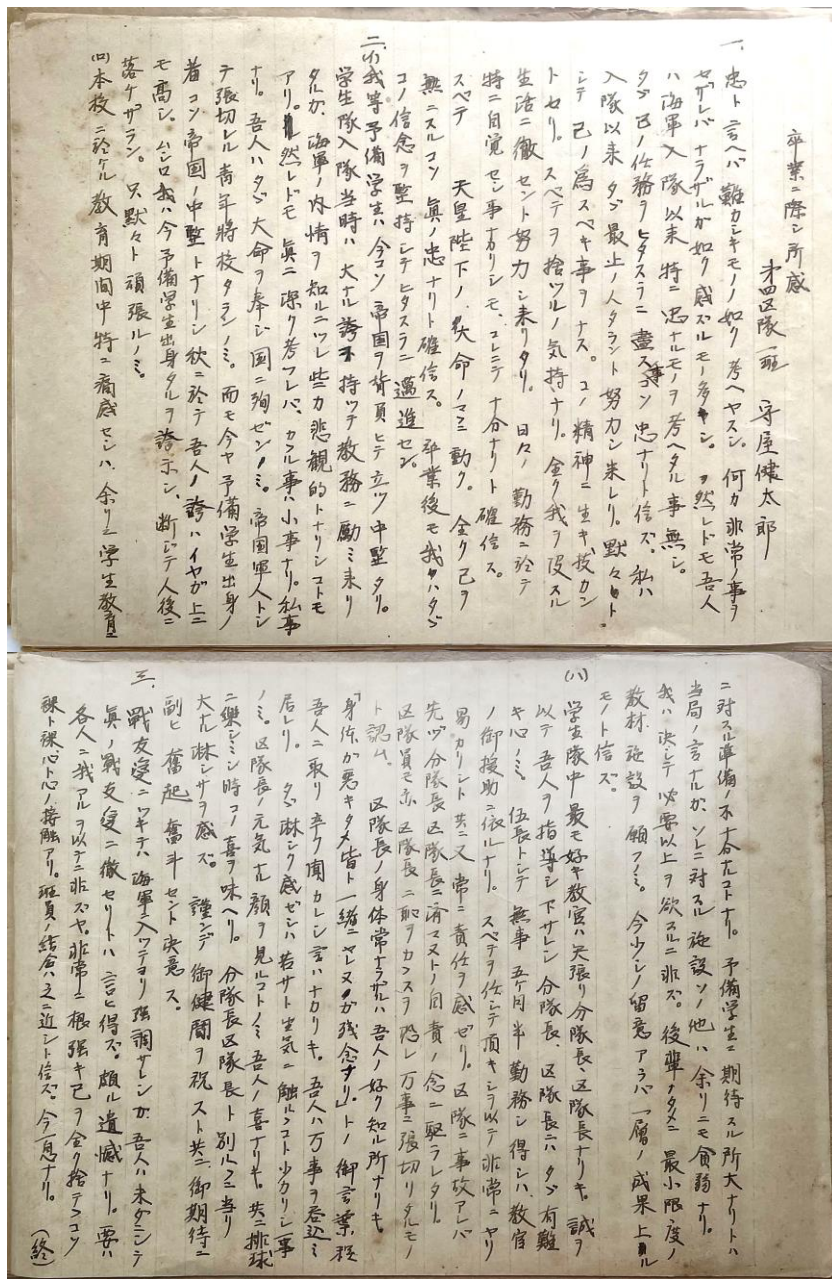 卒業ニ際シ所感
第四区隊一班　守屋健太郎
一、忠ト言ヘバ難カシキモノノ如ク考ヘヤスシ。何カ非常ノ事ヲ
セザレバナラザルガ如ク感ズルモノ多キシ。然レドモ吾人
ハ海軍入隊以来特ニ忠ナルモノヲ考ヘタル事無シ。
タヾ己ノ任務ヲヒタスラニ盡ス事コソ忠ナリト信ズ。私ハ
入隊以来タヾ最上ノ人タラント努力シ来レリ。黙々ト
シテ己ノ為スベキ事ヲナス。コノ精神ニ生キ抜カン
トセリ。スベテヲ捨ツルノ気持ナリ。全ク我ヲ没スル
生活ニ徹セント努力シ来リタリ。日々ノ勤務ニ於テ
特ニ自覚セシ事ナカリシモ、コレニテ十分ナリト確信ス。
スベテ　天皇陛下ノ大命ノマヽニ動ク。全ク己ヲ
無ニスルコソ眞ノ忠ナリト確信ス。卒業後モ我々ハタヾ
コノ信念ヲ堅持シテヒタスラニ邁進セン。
二、(イ)我等予備学生ハ今コソ帝国ヲ背負ヒテ立ツ中堅タリ。
学生隊入隊当時ハ大ナル誇ヲ持ツテ教務ニ励ミ来リ
タルガ、海軍ノ内情ヲ知ルニツレ些カ悲観的トナリシコトモ
アリ。然レドモ眞ニ深ク考フレバ、カヽル事ハ小事ナリ。私事
ナリ。吾人ハタヾ大命ヲ奉ジ国ニ殉ゼンノミ。帝国軍人トシ
テ張切レル青年将校タランノミ。而モ今ヤ予備学生出身ノ
者コソ帝国ノ中堅トナリシ秋ニ於テ吾人ノ誇ハイヤガ上ニ
モ高シ。ムシロ我ハ今予備学生出身タルヲ誇示シ、断ジテ人後ニ
落ケザラン。只黙々ト頑張ルノミ。
(ロ)本校ニ於ケル教育期間中特ニ痛感セシハ、余リニ学生教育
ニ対スル準備ノ不十分ナルコトナリ。予備学生ニ期待スル所大ナリトハ
当局ノ言ナルガ、ソレニ対スル施設ソノ他ハ余リニモ貧弱ナリ。
我ハ決シテ必要以上ヲ欲スルニ非ズ。後輩ノタメニ最小限度ノ
教材、施設ヲ願フノミ。今少シノ留意アラバ一層ノ成果上ル
モノト信ズ。
(ハ)学生隊中最モ好キ教官ハ矢張リ分隊長、区隊長ナリキ。誠ヲ
以テ吾人ヲ指導シ下サレシ分隊長、区隊長ニハタヾ有難
キ心ノミ。伍長トシテ無事五ヶ月半勤務シ得シハ教官
ノ御援助ニ依ルナリ。スベテヲ任シテ頂キシヲ以テ非常ニヤリ
易カリシト共ニ又常ニ責任ヲ感ゼリ。区隊ニ事故アレバ
先ヅ分隊長区隊長ニ済マヌトノ自責ノ念ニ駆ラレタリ。
区隊員モ亦区隊長ニ恥ヲカヽスヲ恐レ万事ニ張切リタルモノ
ト認ム。区隊長ノ身体常ナラザルハ吾人ノ好ク知ル所ナリキ。
「身体ガ悪キタメ皆ト一緒ニヤレヌノガ残念ナリ」トノ御言葉程
吾人ニ取リ辛ク聞カレシ言ハナカリキ。吾人ハ万事ヲ呑込ミ
居レリ。タヾ淋シク感ゼシハ若サト生気ニ触ルコト少カリシ事
ノミ。区隊長ノ元気ナ顔ヲ見ルコトノミ吾人ノ喜ナリキ。共ニ排球
ニ樂シミシ時コノ喜ヲ味ヘリ。分隊長区隊長ト別ルヽニ当リ
大ナル淋シサヲ感ズ。謹ンデ御健闘ヲ祝スト共ニ御期待ニ
副ヒ奮起奮斗セント決意ス。
三、戦友愛ニツキテハ海軍ニ入ツテヨリ強調サレシガ吾人ハ未ダニシテ
眞ノ戦友愛ニ徹セリトハ言ヒ得ズ。頗ル遺憾ナリ。要ハ
各人ニ我アルヲ以テニ非ズヤ。非常ニ根強キ己ヲ全ク捨テヽコソ
裸ト裸心ト心ノ接触アリ。班員ノ結合ハ之ニ近シト信ズ。今一息ナリ。
（終）